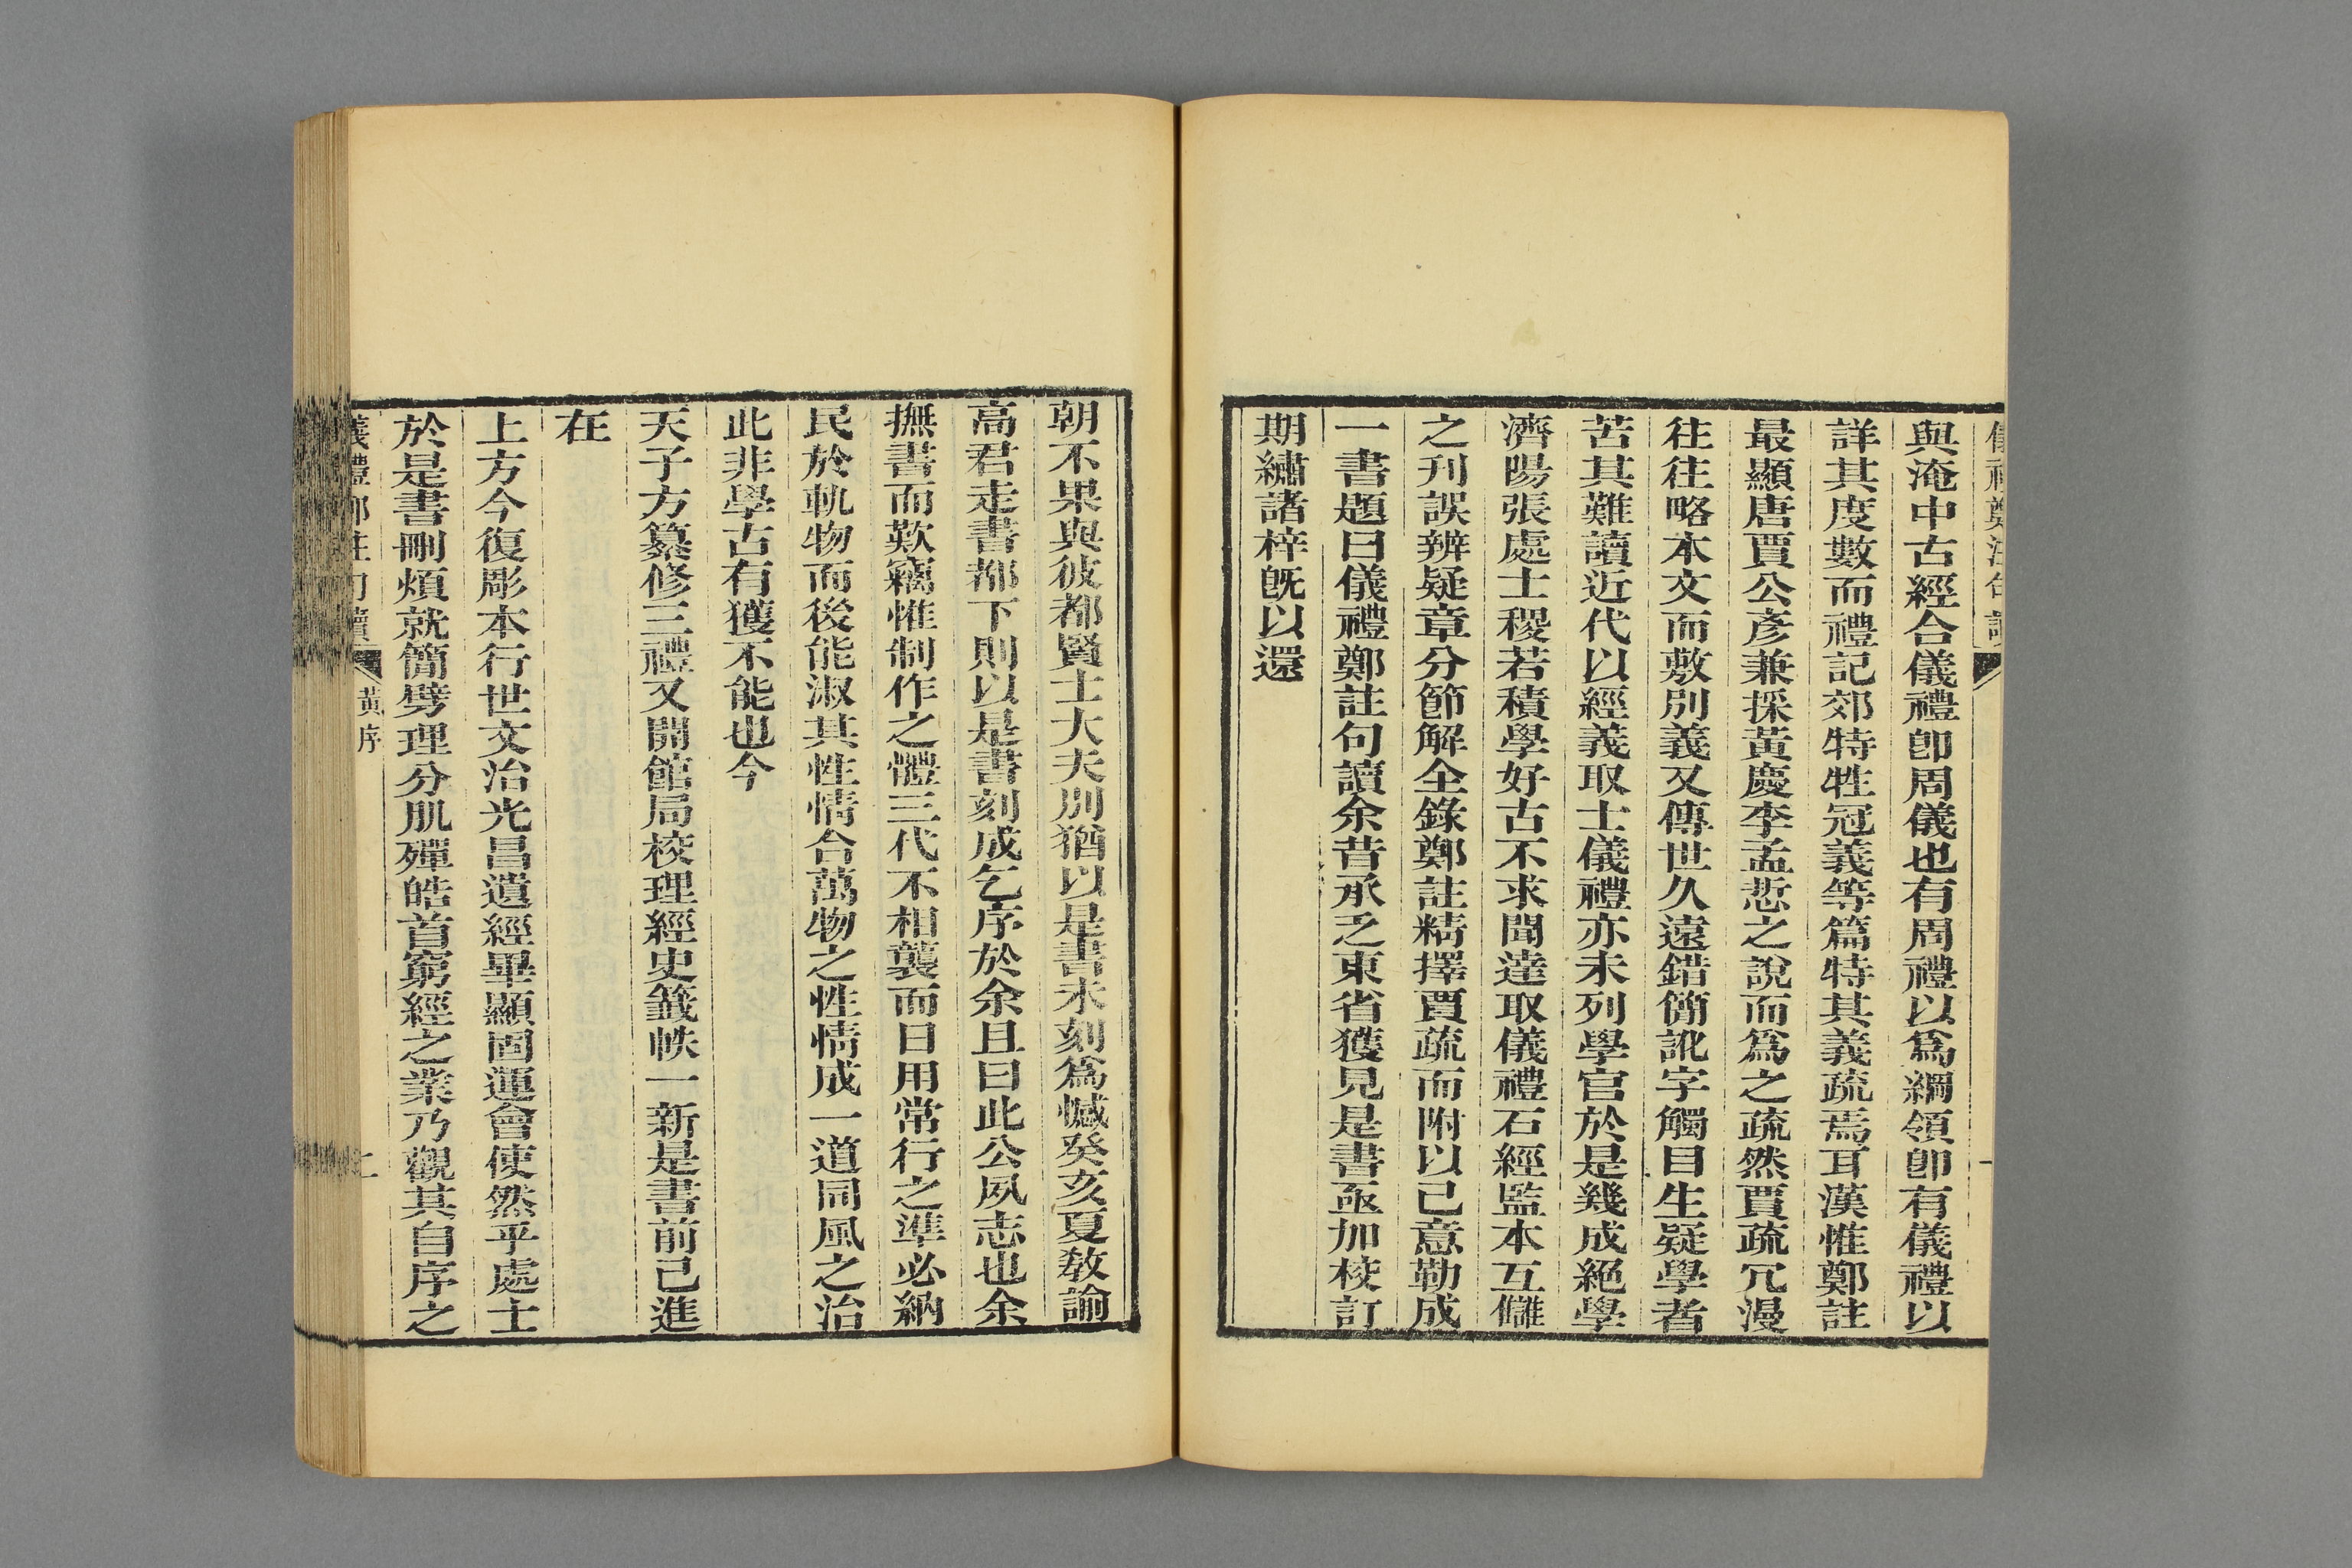 儀禮鄭注句讀
一
與淹中古經合儀禮卽周儀也有周禮以爲綱領卽有儀禮以
詳其度數而禮記郊特牲冠義等篇特其義疏焉耳漢惟鄭註
最顯唐賈公彥兼採黃慶李孟悊之說而爲之疏然賈疏冗漫
往往略本文而敷別義又傳世久遠錯簡訛字觸目生疑學者
苦其難讀近代以經義取士儀禮亦未列學官於是幾成絕學
濟陽張處士稷若積學好古不求聞達取儀禮石經監本互讎
之刊誤辨疑章分節解全錄鄭註精擇賈疏而附以己意勒成
一書題曰儀禮鄭註句讀余昔承乏東省獲見是書亟加校訂
期繡諸梓旣以還
朝不果與彼都賢士大夫別猶以是書未刻爲憾癸亥夏敎諭
高君走書都下則以是書刻成乞序於余且曰此公夙志也余
撫書而歎竊惟制作之體三代不相襲而日用常行之準必納
民於軌物而後能淑其性情合萬物之性情成一道同風之治
此非學古有獲不能也今
天子方纂修三禮又開館局校理經史籤帙一新是書前已進
在
上方今復彫本行世文治光昌遺經畢顯固運會使然乎處士
於是書刪煩就簡劈理分肌殫皓首窮經之業乃觀其自序之
儀禮鄭註句讀
黃序
二